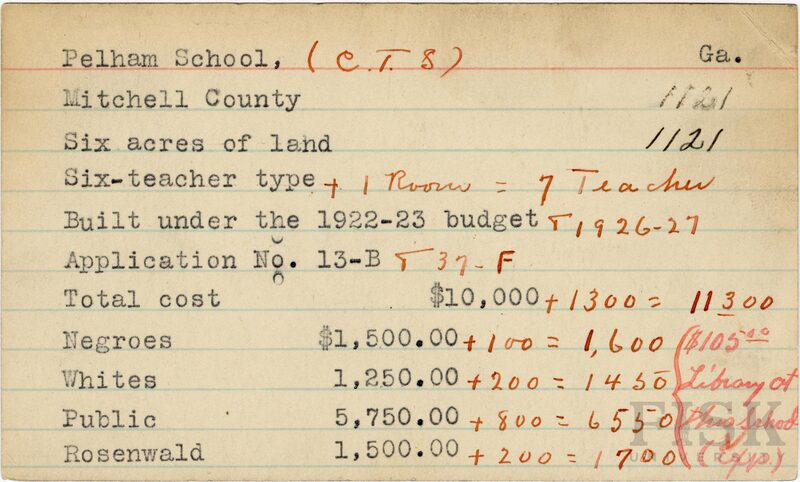 Pelham School, (C.T.S) Ga.
Mitchell County 1121
Six acres of land 1121
Six-teacher type + 1 Room = 7 Teacher
Built under the 1922-23 budget + 1926-27
Application No. 13-B + 37-F
Total cost $10,000 + 1300 = 11300
Negroes $1,500.00 + 100 = 1,600 ($105.00
Whites 1,250.00 + 200 = 1450 Library at
Public 5,750.00 + 800 = 6550 this School
Rosenwald 1,500.00 + 200 = 1700 (Exp.)
FISK
UNIVERSITY